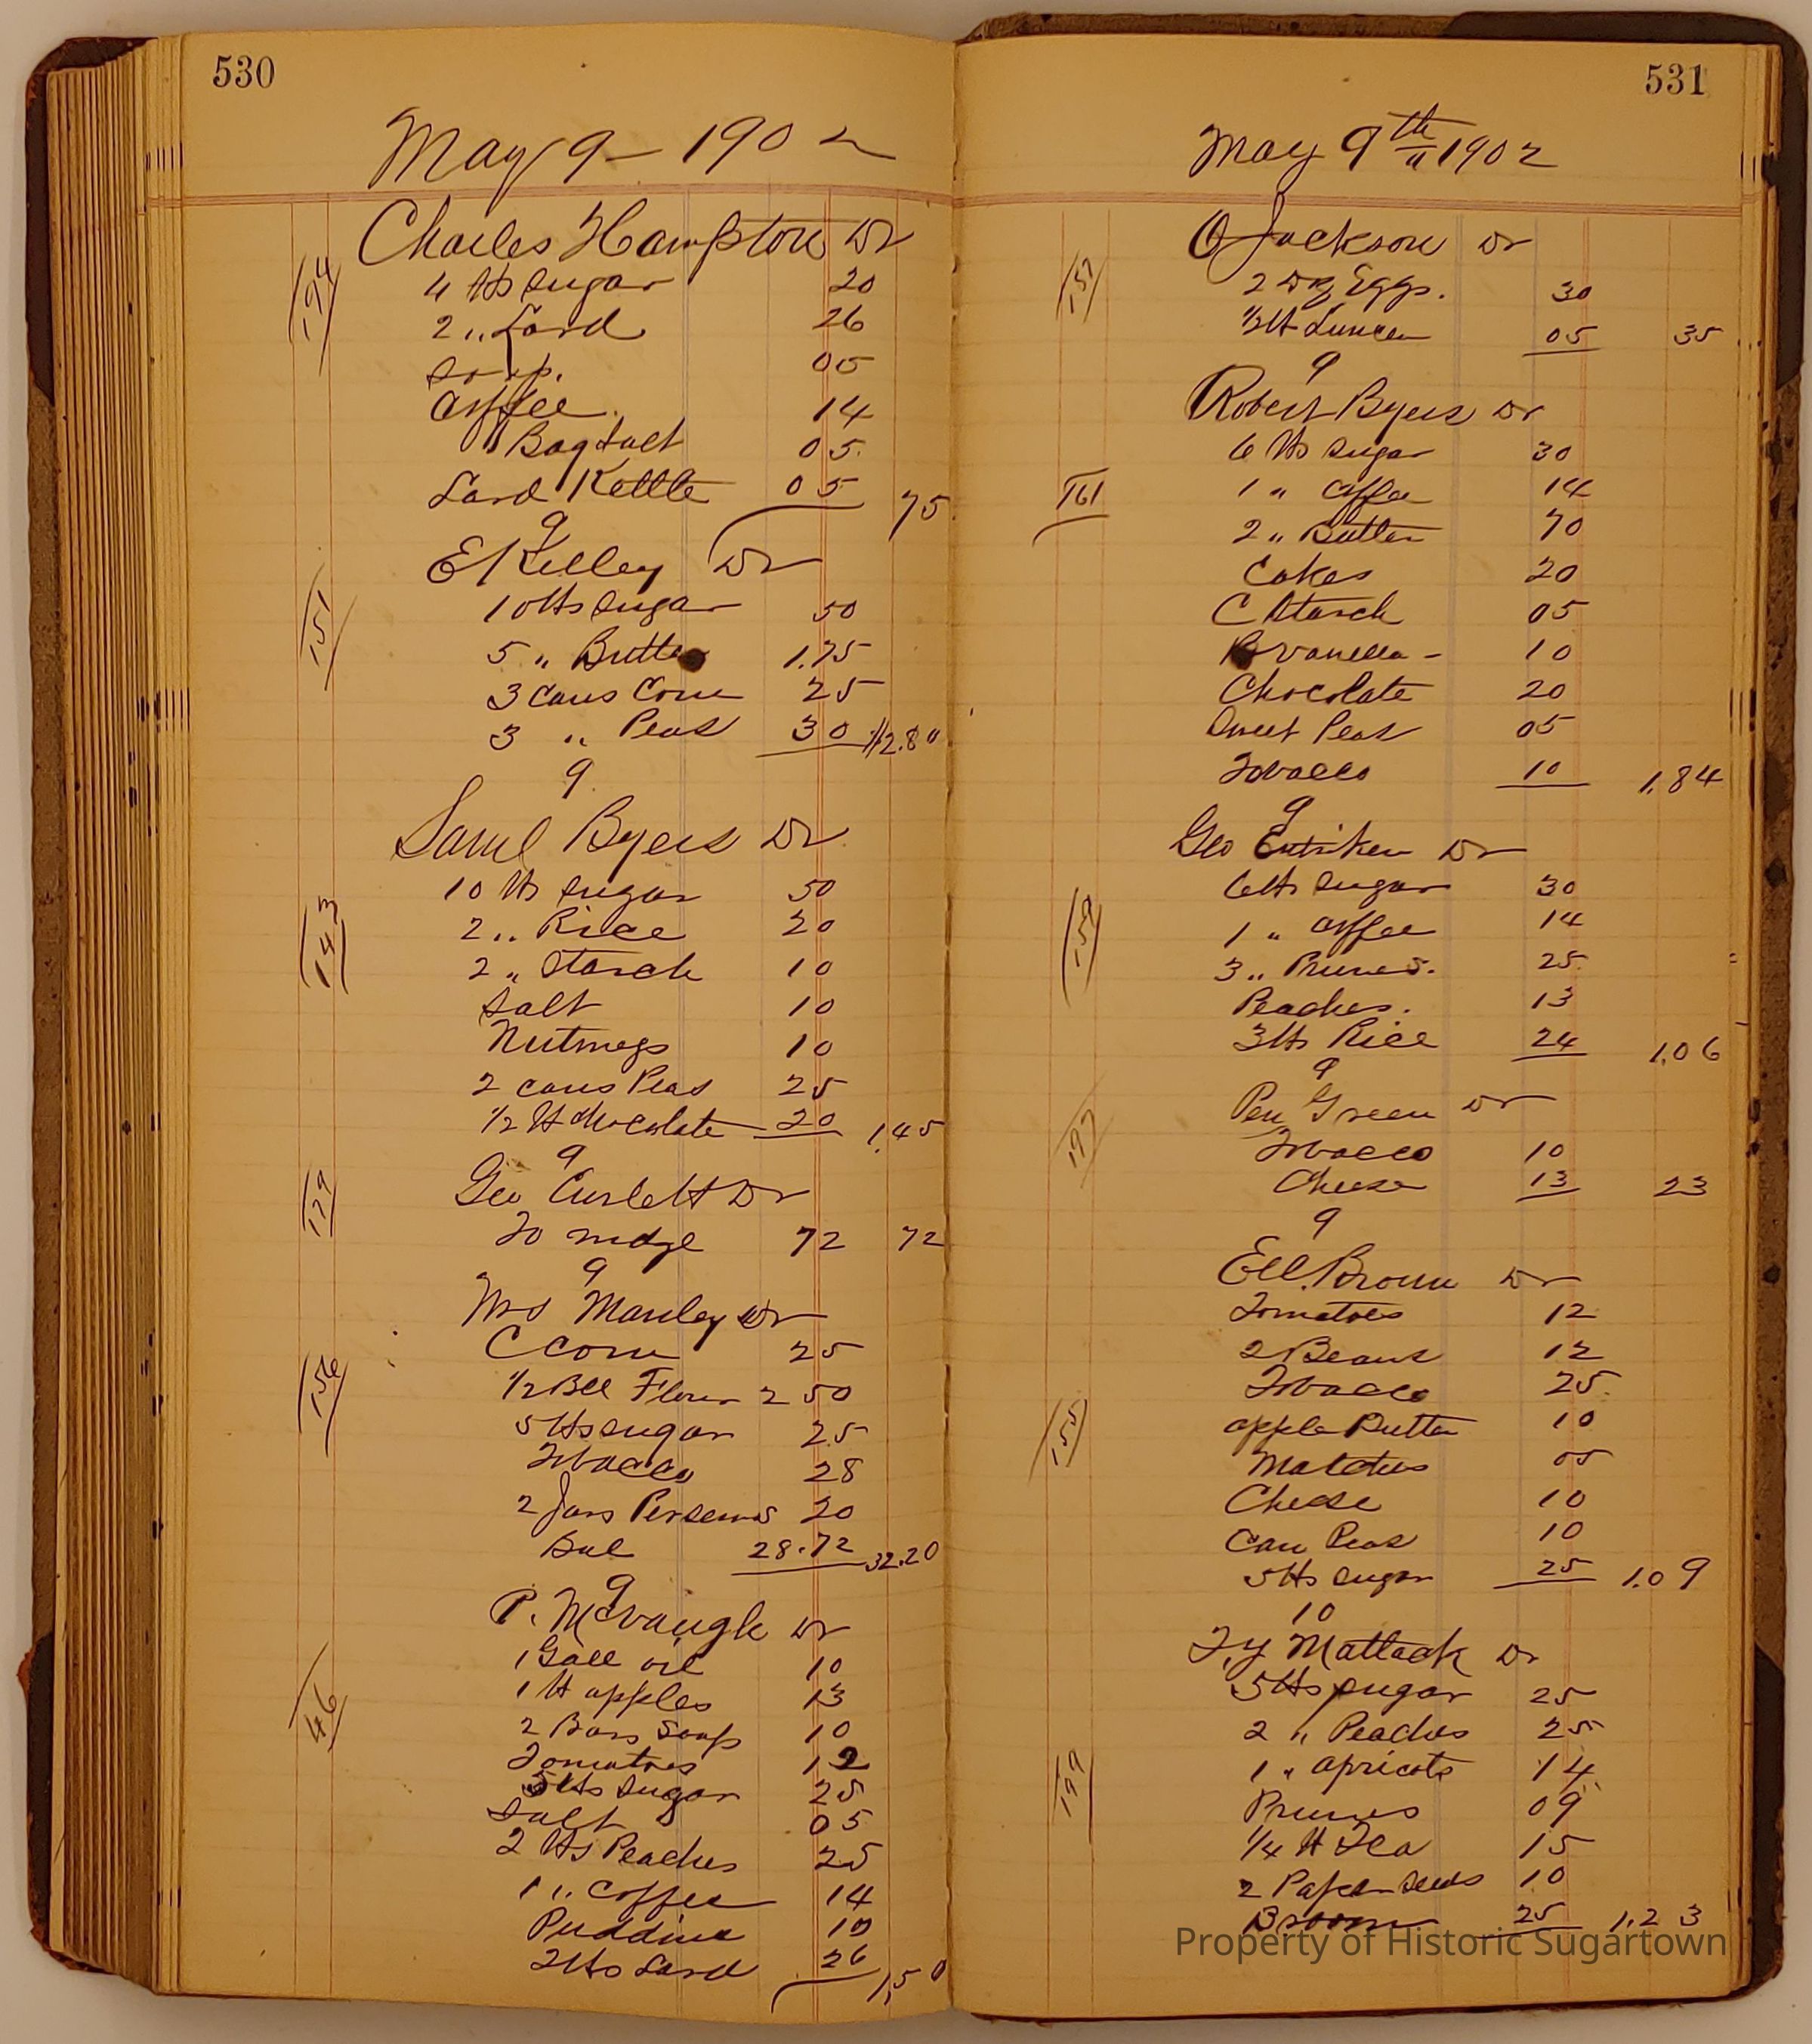 530
May 9 - 1902
Charles Hampton Dr
194
4 lbs sugar 20
2 " Lard 26
Soap. 05
Coffee. 14
Bag Salt 05.
Lard Kettle 05 75
9
E Kelley Dr
151
10 lbs sugar 50
5 " Butter 1.75
3 cans Corn 25
3 " Peas 30 $2.80
9
Saml Byers Dr
143
10 lb sugar 50
2 " Rice 20
2 " Starch 10
Salt 10
Nutmegs 10
2 cans Peas 25
1/2 lb chocolate 20 1.45
9
Geo Curlett Dr
179
To mdge 72 72
9
Mrs Manley Dr
156
C corn 25
1/2 Bll Flour 2 50
5 lbs sugar 25
Tobacco 28
2 Jars Perserves 20
Bal 28.72 32.20
9
P. McVaugh Dr
46
1 Gall oil 10
1 lb apples 13
2 Bars Soap 10
Tomatoes 12
5 lbs sugar 25
Salt 05
2 lbs Peaches 25
1 " Coffee 14
Puddine 10
2 lbs Lard 26 1,50
531
May 9th 1902
O Jackson Dr
157
2 Dz Eggs. 30
05 35
9
Robert Byers Dr
161
6 lbs sugar 30
1 " coffee 14
2 " Butter 70
Cakes 20
C Starch 05
vanella - 10
Chocolate 20
Sweet Peas 05
Tobacco 10 1.84
9
Geo Entriken Dr
6 lbs sugar 30
1 " coffee 14
3 " Prunes. 25
Peaches. 13
3 lbs Rice 24 1.06
9
Pen Green Dr
197
Tobacco 10
Cheese 13 23
9
Ell. Brown Dr
155
Tomatoes 12
2 Beans 12
Tobacco 25.
apple Butter 10
Matches 05
Cheese 10
Can Peas 10
5 lbs sugar 25 1.09
10
T.y Matlack Dr
199
5 lbs sugar 25
2 " Peaches 25
1 " apricots 14
Prunes 09
1/4 lb Tea 15
2 Paper seeds 10
Broom 25 1.23
Property of Historic Sugartown